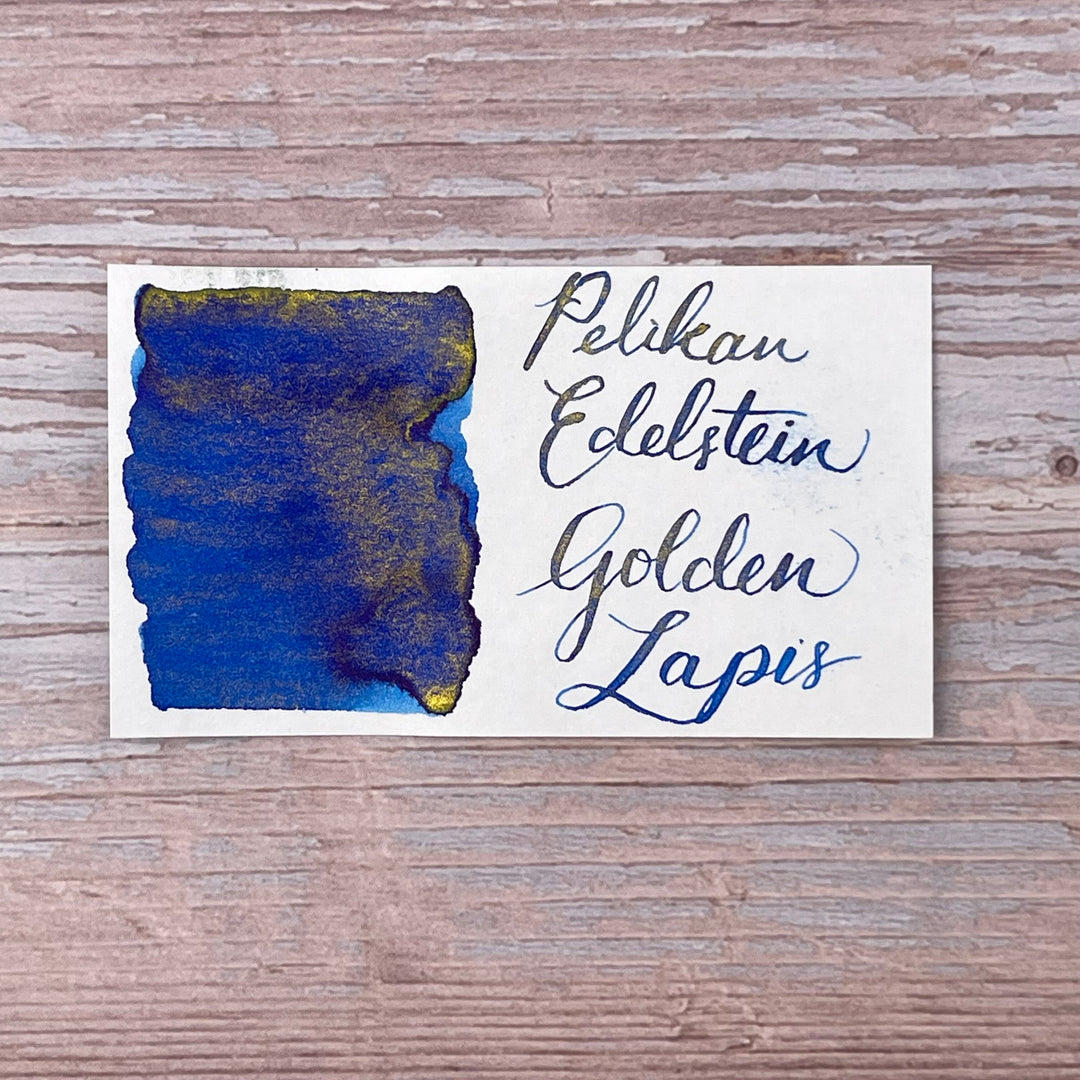 Pelikan
Edelstein
Golden
Lapis